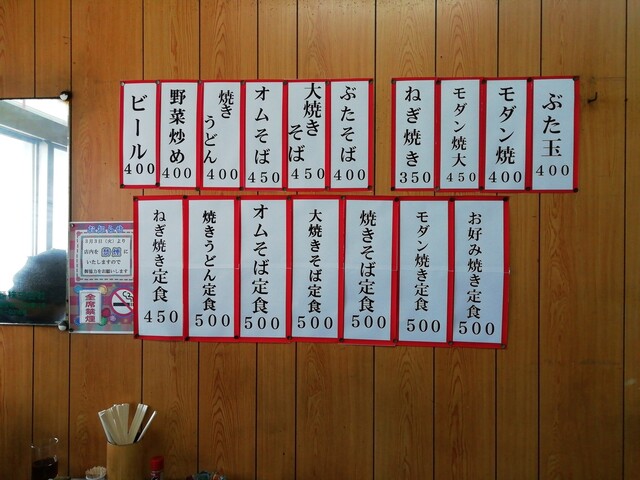 ぶた玉 400
モダン焼 400
モダン焼大 450
ねぎ焼き 350
ぶたそば 400
大焼きそば 450
オムそば 450
焼きうどん 400
野菜炒め 400
ビール 400
お好み焼き定食 500
モダン焼き定食 500
焼きそば定食 500
大焼きそば定食 500
オムそば定食 500
焼きうどん定食 500
ねぎ焼き定食 450
おしらせ
3月3日(火)より
店内を禁煙に
いたしますので
御協力をお願いします
全席禁煙